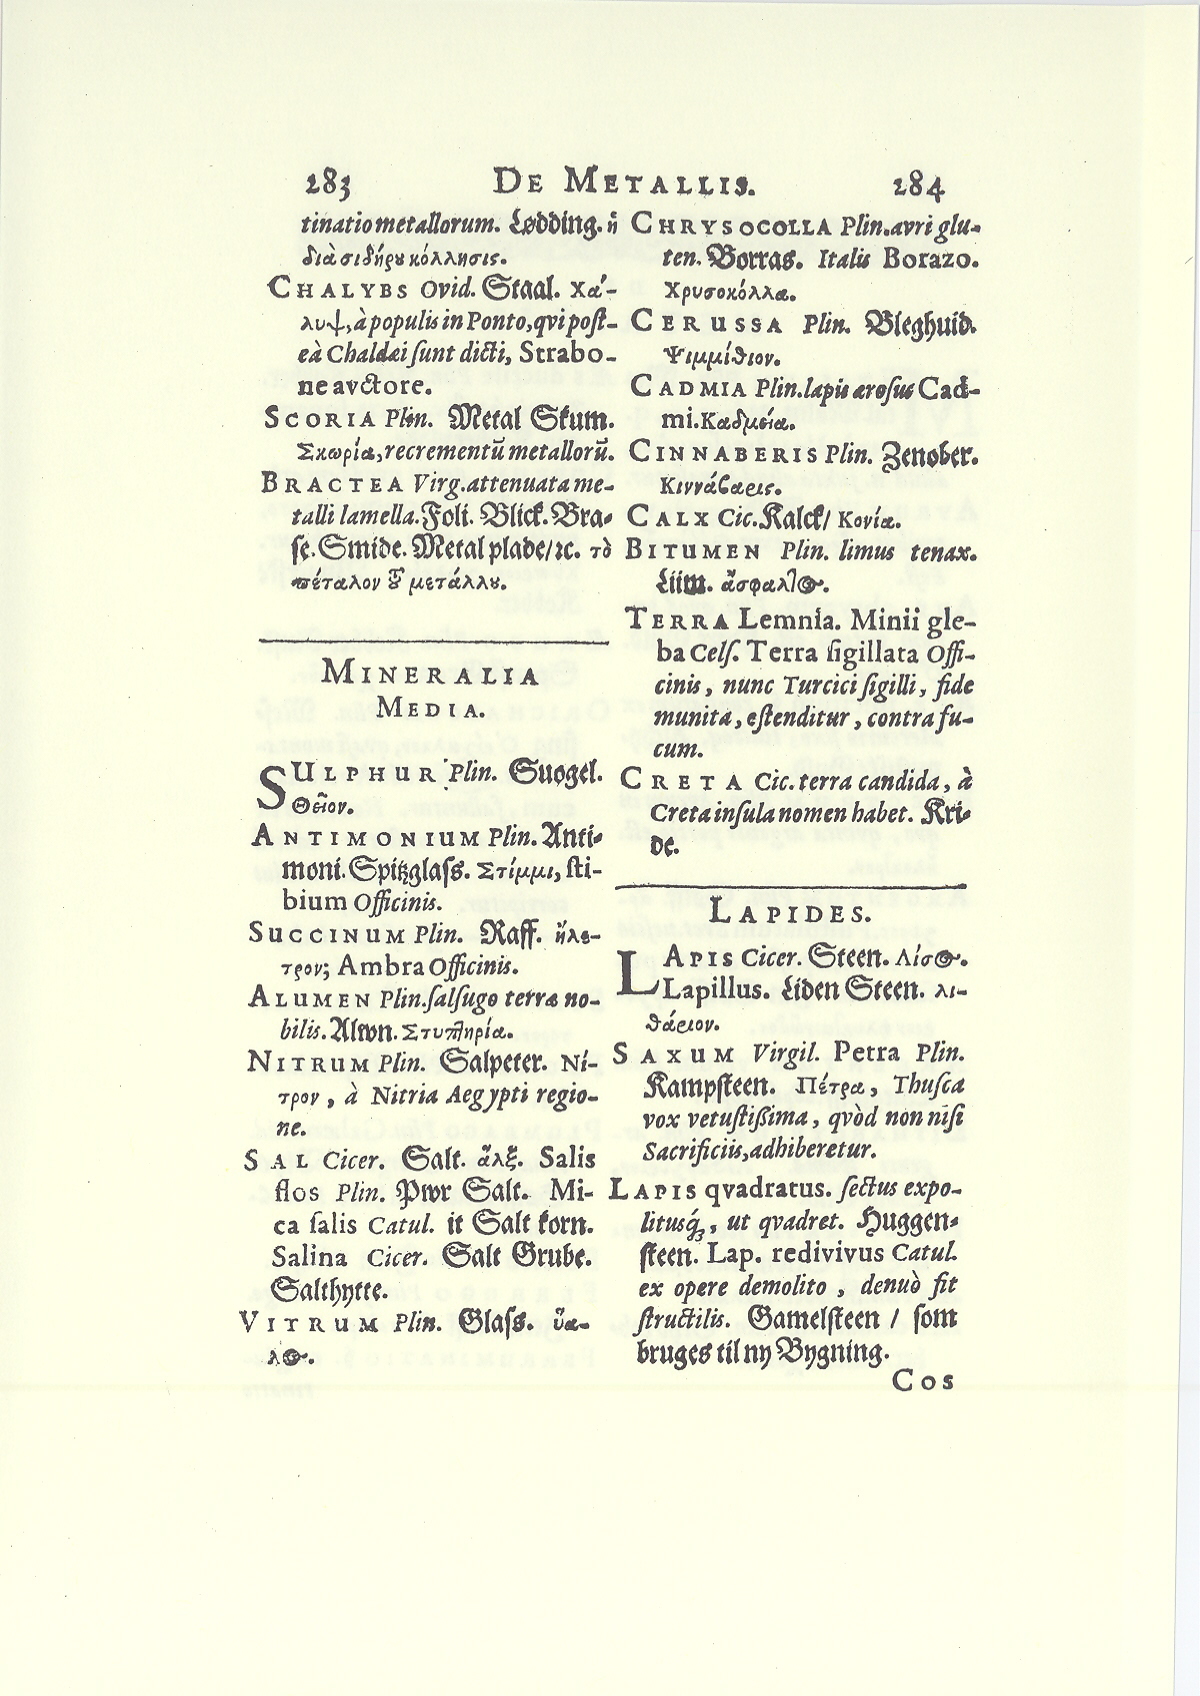 283 DE METALLIS. 284
tinatio metallorum. Lødding. ἡ
διὰ σιδήρου κόλλησις.
CHALYBS Ovid. Staal. Χά-
λυψ, à populis in Ponto, qvi post-
eà Chaldæi sunt dicti, Strabo-
ne avctore.
SCORIA Plin. Metal Skum.
Σκωρία, recrementũ metallorũ.
BRACTEA Virg. attenuata me-
talli lamella. Foli. Blick. Bra-
se. Smide. Metal plade/ꝛc. τὸ
πέταλον τ͂ȣ μετάλλȣ.
MINERALIA
MEDIA.
SULPHUR Plin. Suogel.
Θεῖον.
ANTIMONIUM Plin. Anti-
moni. Spitzglass. Στίμμι, sti-
bium Officinis.
SUCCINUM Plin. Raff. ἤλε-
τρον; Ambra Officinis.
ALUMEN Plin. salsugo terræ no-
bilis. Alwn. Στυπτηρία.
NITRUM Plin. Salpeter. Νί-
τρον, à Nitria Aegypti regio-
ne.
SAL Cicer. Salt. ἅλς. Salis
flos Plin. Pwr Salt. Mi-
ca salis Catul. it Salt korn.
Salina Cicer. Salt Grube.
Salthytte.
VITRUM Plin. Glass. ὕα-
λος.
CHRYSOCOLLA Plin. avri glu-
ten. Borras. Italis Borazo.
Χρυσοκόλλα.
CERUSSA Plin. Bleghuid.
Ψιμμίθιον.
CADMIA Plin. lapis ærosus Cad-
mi. Καδμεία.
CINNABERIS Plin. Zenober.
Κιννάβαρις.
CALX Cic. Kalck/ Κονία.
BITUMEN Plin. limus tenax.
Liim. ἄσφαλτος.
TERRA Lemnia. Minii gle-
ba Cels. Terra sigillata Offi-
cinis, nunc Turcici sigilli, fide
munita, ostenditur, contra fu-
cum.
CRETA Cic. terra candida, à
Creta insula nomen habet. Kri-
de.
LAPIDES.
LAPIS Cicer. Steen. Λίθος.
Lapillus. Liden Steen. λι-
θάριον.
SAXUM Virgil. Petra Plin.
Kampsteen. Πέτρα, Thusca
vox vetustißima, qvòd non nisi
Sacrificiis, adhiberetur.
LAPIS qvadratus. sectus expo-
litusq́ȝ, ut qvadret. Huggen-
steen. Lap. redivivus Catul.
ex opere demolito, denuò fit
structilis. Gamelsteen / som
bruges til ny Bygning.
Cos